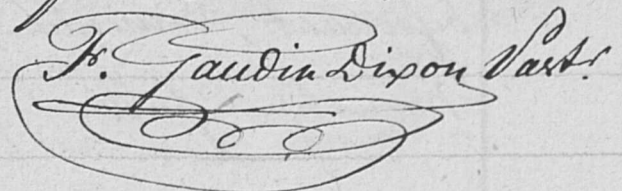 F. Gaudin Dixon Past.r